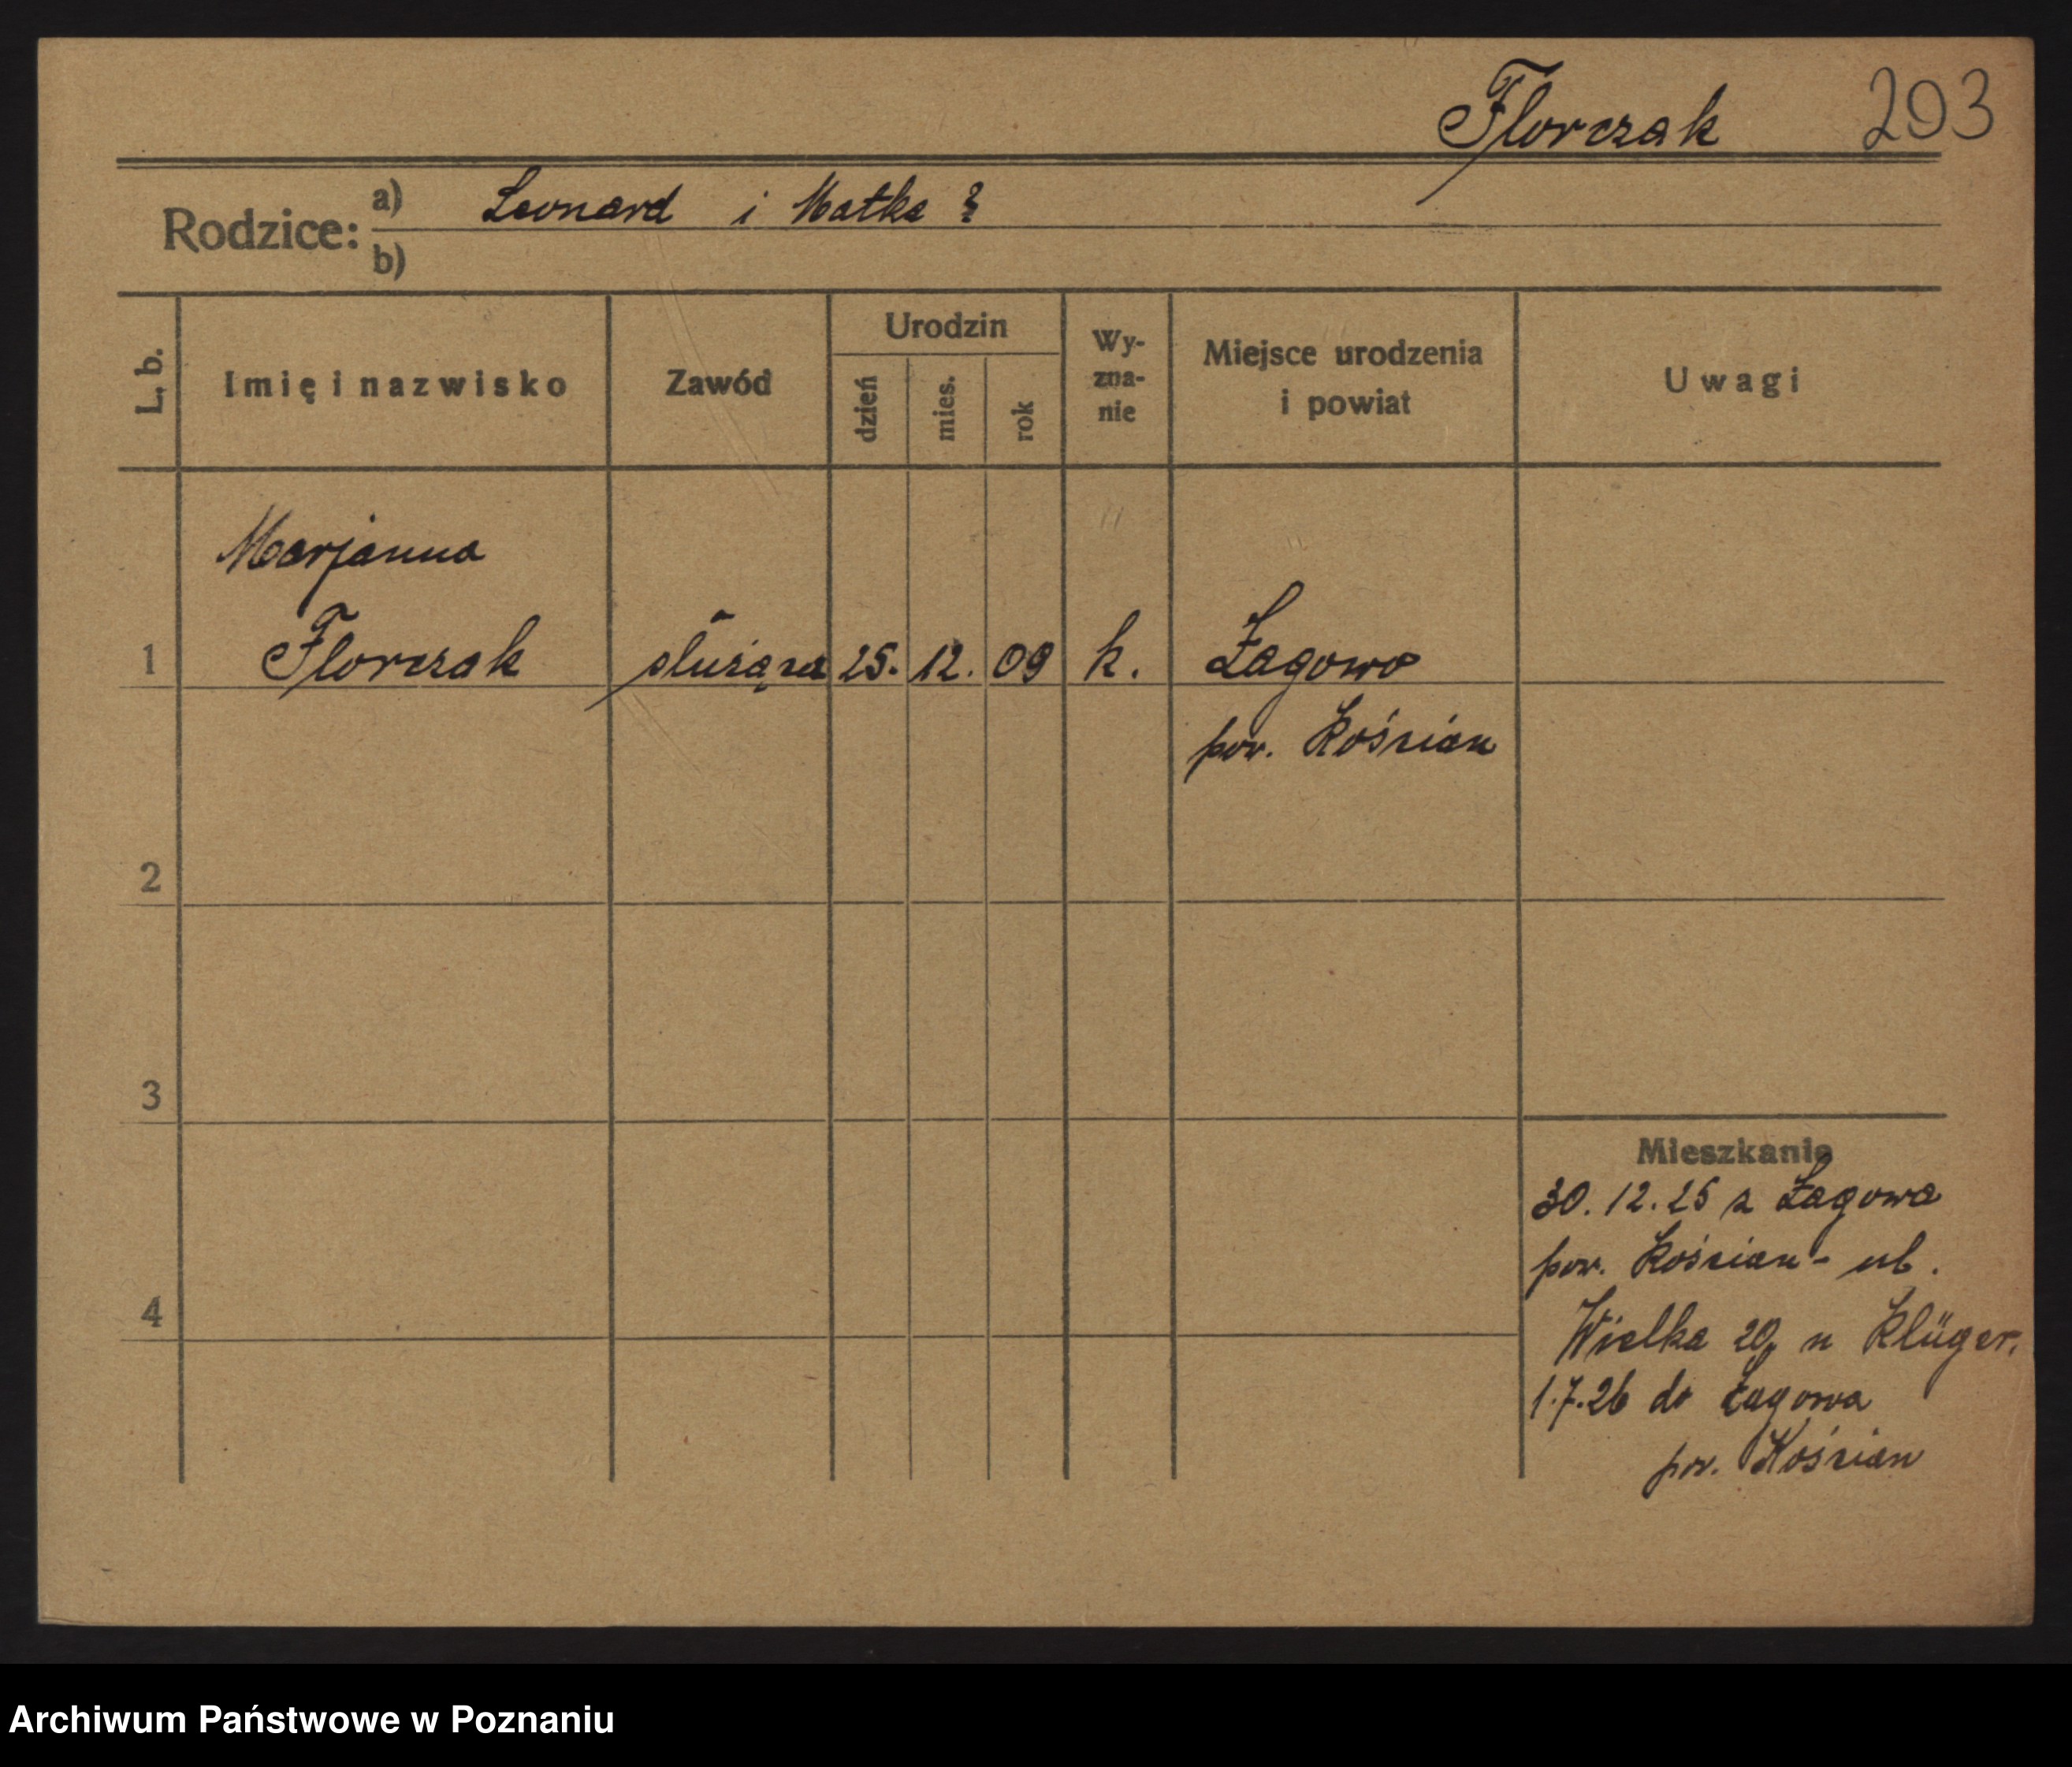 Florczak 203
Rodzice: a) Leonard i Matka ?
b)
L. b. Imię i nazwisko Zawód Urodzin dzień mies. rok Wy-zna-nie Miejsce urodzenia i powiat Uwagi
Marjanna
1 Florczak służąca 25. 12. 09 k. Łagowo
pow. Kościan
2
3
Mieszkanie
30.12.25 z Łagowa
pow. Kościan - ul.
4
Wielka 20, u Klüger.
1.7.26 do Łagowa
pow. Kościan
Archiwum Państwowe w Poznaniu